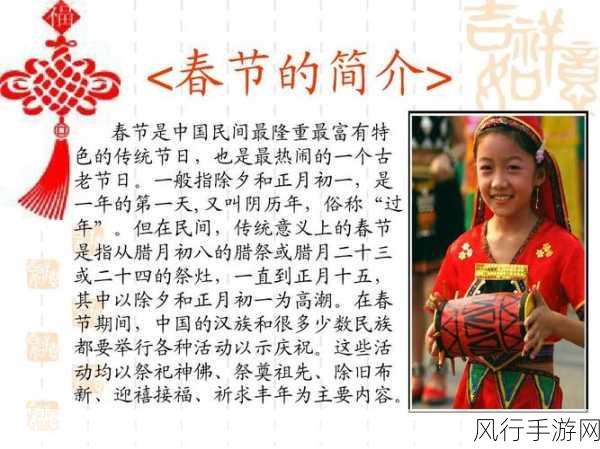 福
吉祥
如意
<春节的简介>
春节是中国民间最隆重最富有特
色的传统节日，也是最热闹的一个古
老节日。一般指除夕和正月初一，是
一年的第一天,又叫阴历年，俗称“过
年”。但在民间，传统意义上的春节
是指从腊月初八的腊祭或腊月二十三
或二十四的祭灶，一直到正月十五，
其中以除夕和正月初一为高潮。在春
节期间，中国的汉族和很多少数民族
都要举行各种活动以示庆祝。这些活
动均以祭祀神佛、祭奠祖先、除旧布
新、迎禧接福、祈求丰年为主要内容。
风行手游网